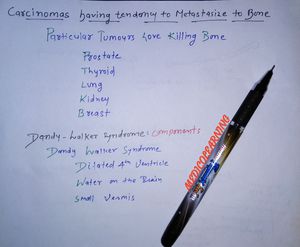 Carcinomas having tendancy to Metastasize to Bone
Particular Tumours Love Killing Bone
Prostate
Thyroid
Lung
Kidney
Breast
Dandy-Walker Syndrome: Components
Dandy Walker Syndrome
Dilated 4th Ventricle
Water on the Brain
Small Vermis
MEDICOLEARNING